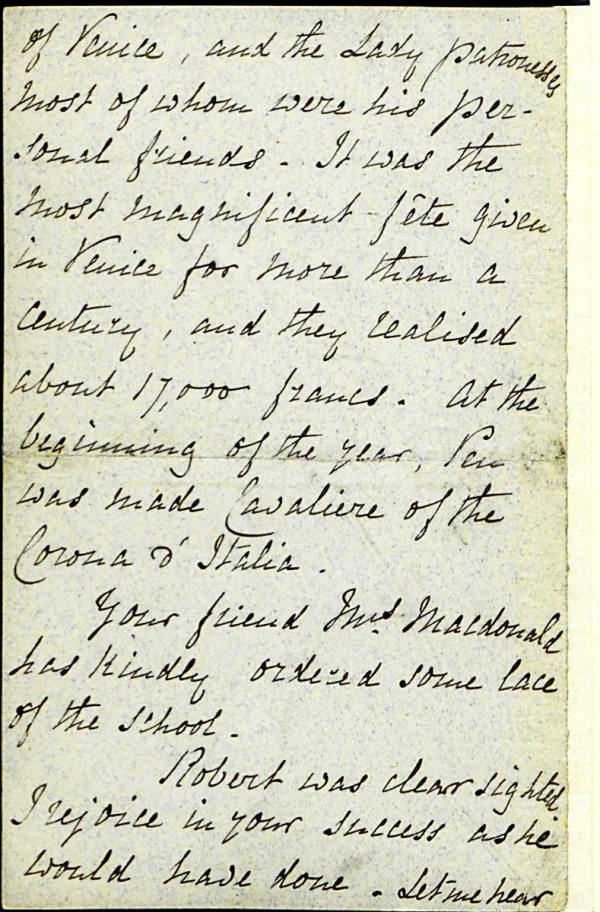 of Venice, and the Lady patronesses
most of whom were his per-
sonal friends - It was the
most magnificent fête given
in Venice for more than a
century, and they realised
about 17,000 francs. At the
beginning of the year, Pen
was made Cavaliere of the
Corona d' Italia.
Your friend Mrs. Macdonald
has kindly ordered some lace
of the school.
Robert was clear sighted.
I rejoice in your success as he
would have done. Let me hear